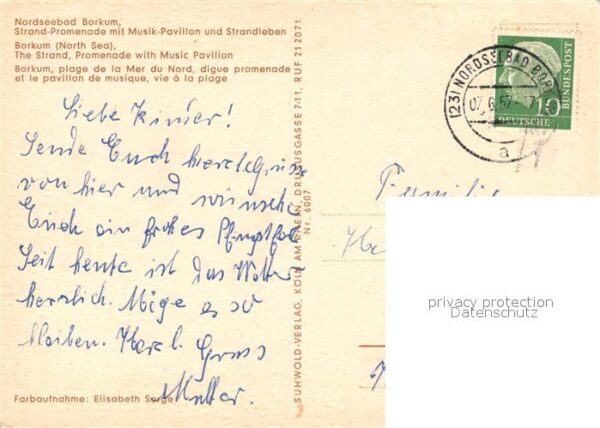 Nordseebad Borkum,
Strand-Promenade mit Musik-Pavillon und Strandleben
Borkum (North Sea),
The Strand, Promenade with Music Pavilion
Borkum, plage de la Mer du Nord, digue promenade
et le pavillon de musique, vie à la plage
Liebe Kinder!
Sende Euch herzl. Grüsse
von hier und wünsche
Euch ein frohes Pfingstfest
Seit heute ist das Wetter
herrlich. Möge es so
bleiben. Herzl. Gruss
Mutter.
Farbaufnahme: Elisabeth
SUHWOLD-VERLAG, KÖLN AM RHEIN, DRUSUSGASSE 7-11, RUF 212071
Nr. 6007
(23) NORDSEEBAD BOR
07.6.57
a
10
DEUTSCHE
BUNDESPOST
Familie
privacy protection
Datenschutz